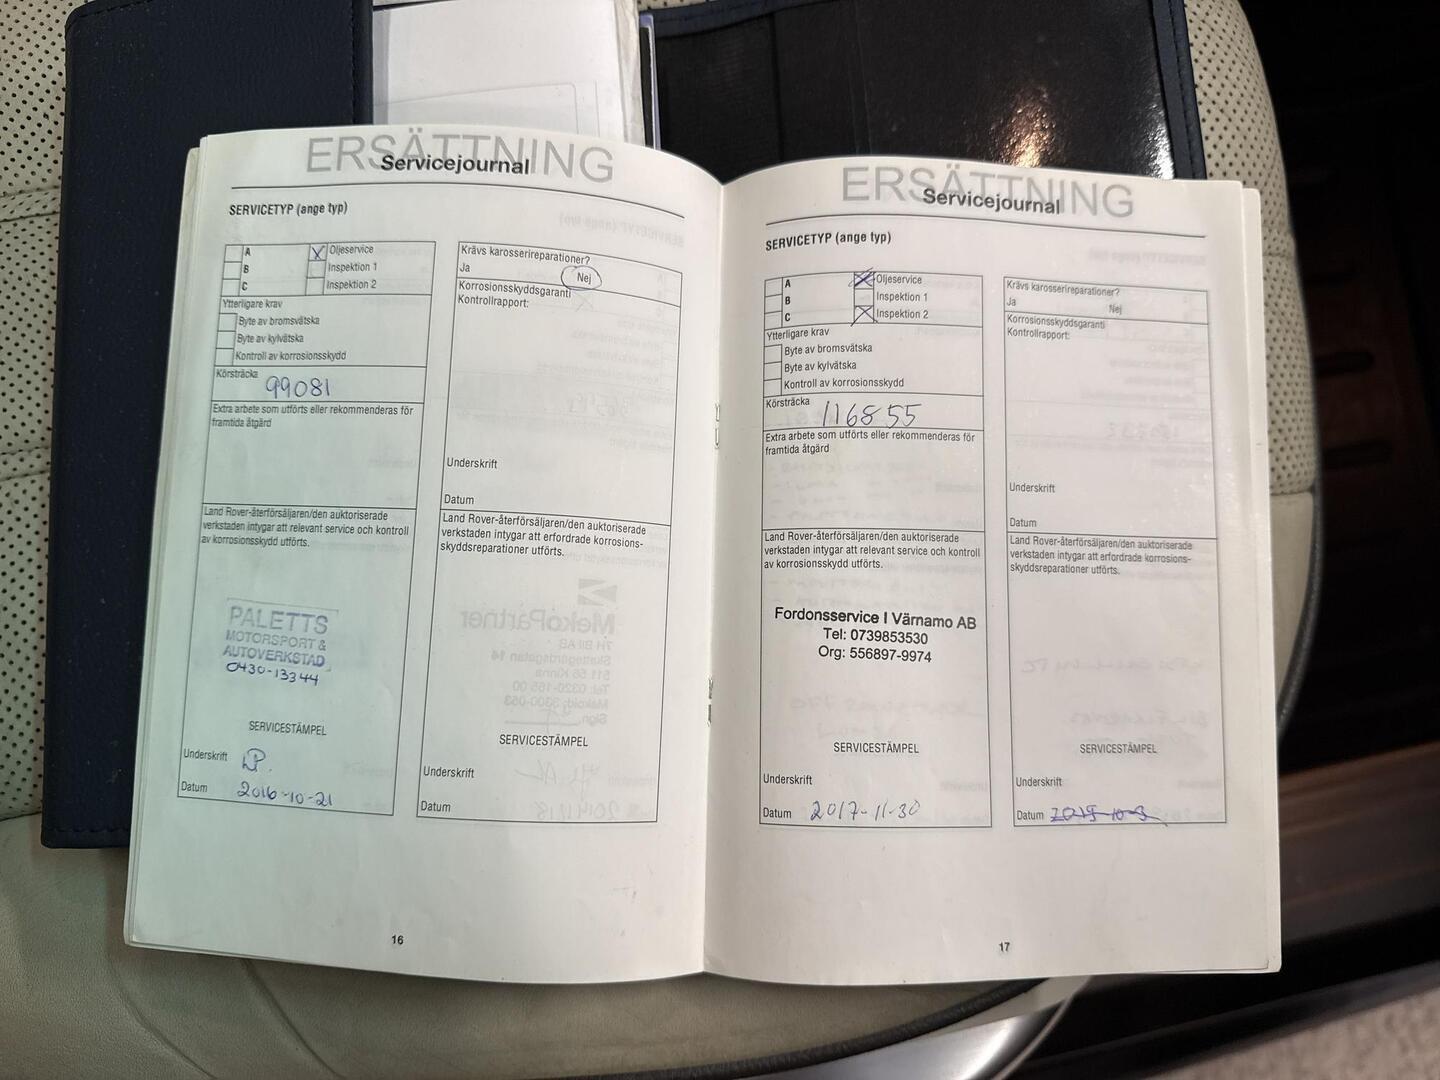 ERSÄTTNING
Servicejournal
SERVICETYP (ange typ)
A
B
C
Oljeservice
Inspektion 1
Inspektion 2
Ytterligare krav
Byte av bromsvätska
Byte av kylvätska
Kontroll av korrosionsskydd
Körsträcka
99081
Extra arbete som utförts eller rekommenderas för
framtida åtgärd
Land Rover-återförsäljaren/den auktoriserade
verkstaden intygar att relevant service och kontroll
av korrosionsskydd utförts.
PALETTS
MOTORSPORT &
AUTOVERKSTAD
0430-13344
SERVICESTÄMPEL
Underskrift
Datum 2016-10-21
Krävs karosserireparationer?
Ja Nej
Korrosionsskyddsgaranti
Kontrollrapport:
Underskrift
Datum
Land Rover-återförsäljaren/den auktoriserade
verkstaden intygar att erfordrade korrosions-
skyddsreparationer utförts.
SERVICESTÄMPEL
Underskrift
Datum
16
ERSÄTTNING
Servicejournal
SERVICETYP (ange typ)
A
B
C
Oljeservice
Inspektion 1
Inspektion 2
Ytterligare krav
Byte av bromsvätska
Byte av kylvätska
Kontroll av korrosionsskydd
Körsträcka
116855
Extra arbete som utförts eller rekommenderas för
framtida åtgärd
Land Rover-återförsäljaren/den auktoriserade
verkstaden intygar att relevant service och kontroll
av korrosionsskydd utförts.
Fordonsservice I Värnamo AB
Tel: 0739853530
Org: 556897-9974
SERVICESTÄMPEL
Underskrift
Datum 2017-11-30
Krävs karosserireparationer?
Ja Nej
Korrosionsskyddsgaranti
Kontrollrapport:
Underskrift
Datum
Land Rover-återförsäljaren/den auktoriserade
verkstaden intygar att erfordrade korrosions-
skyddsreparationer utförts.
SERVICESTÄMPEL
Underskrift
Datum
17